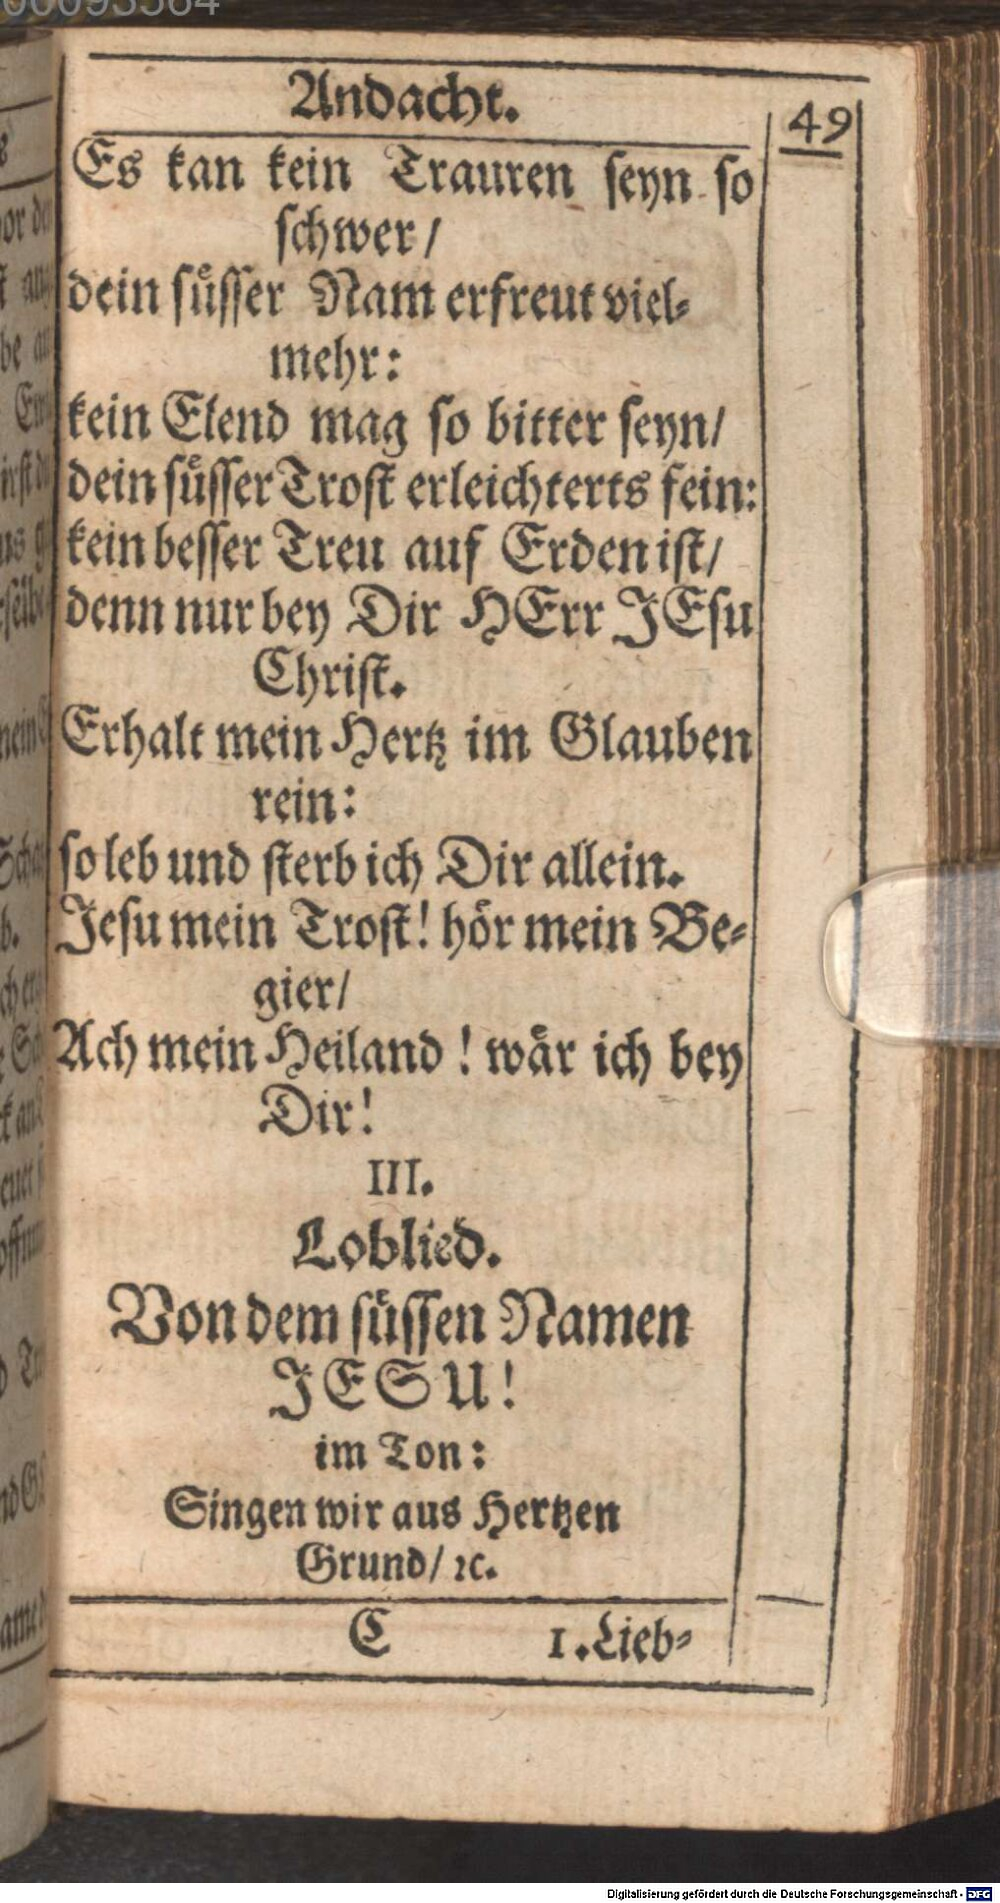 Andacht.
49
Es kan kein Trauren seyn so
schwer /
dein süsser Nam erfreut viel-
mehr:
kein Elend mag so bitter seyn /
dein süsser Trost erleichterts fein:
kein besser Treu auf Erden ist /
denn nur bey Dir HErr JEsu
Christ.
Erhalt mein Hertz im Glauben
rein:
so leb und sterb ich Dir allein.
Jesu mein Trost! hör mein Be-
gier /
Ach mein Heiland! wär ich bey
Dir!
III.
Loblied.
Von dem süssen Namen
JESU!
im Ton:
Singen wir aus Hertzen
Grund / ꝛc.
C 1. Lieb-
Digitalisierung gefördert durch die Deutsche Forschungsgemeinschaft - DFG